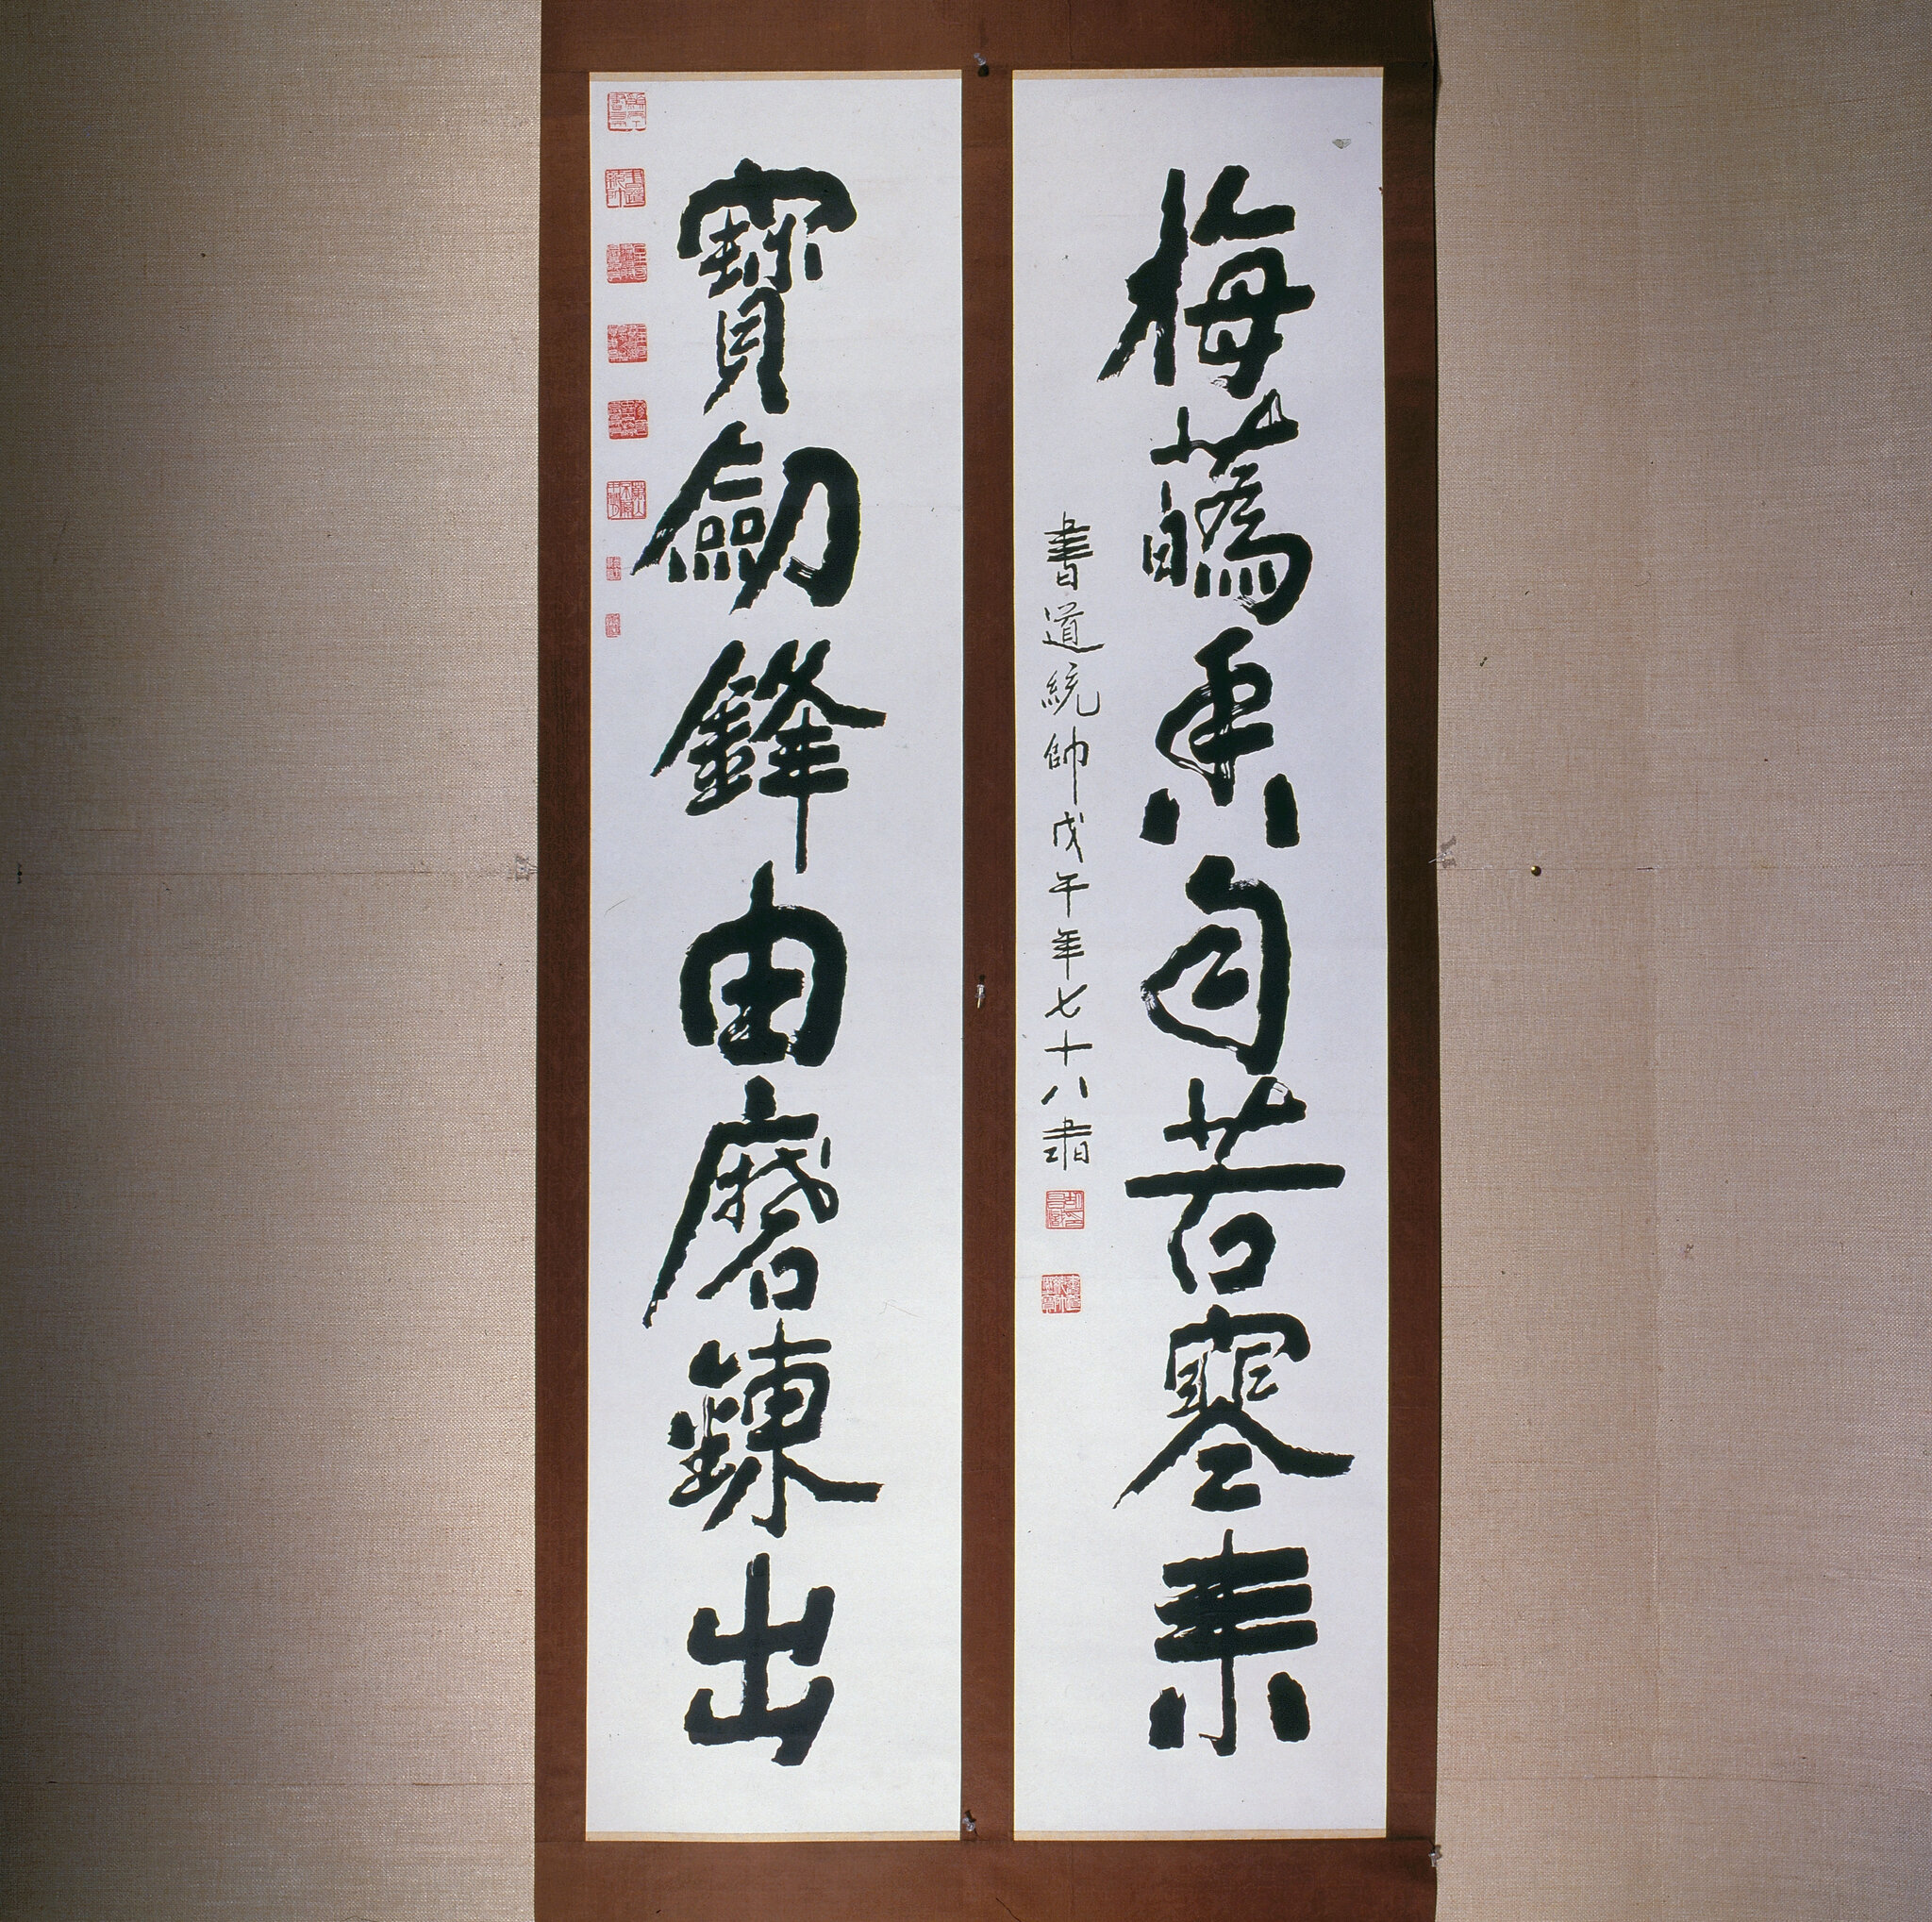 梅蘤香自苦寒來
書道統帥戊午年七十八書
寶劎鋒由磨鍊出